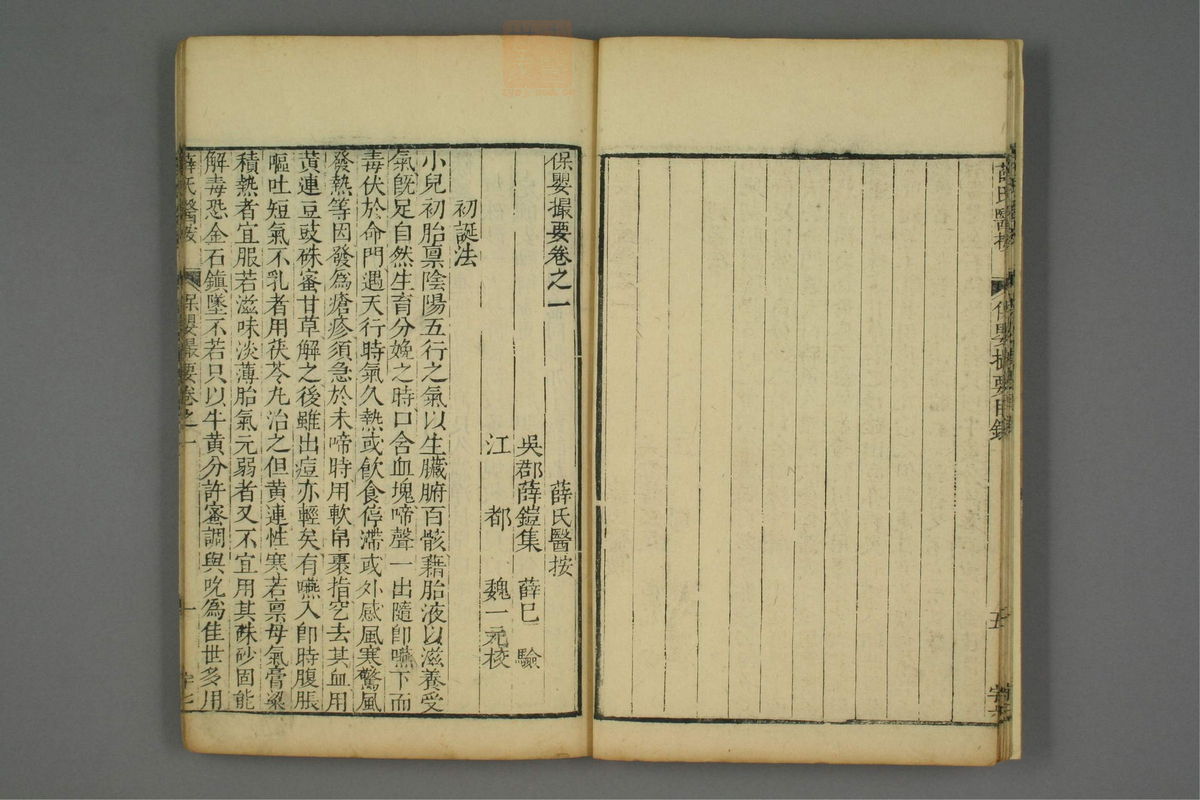 保嬰撮要卷之一 薛氏醫按
吳郡薛鎧集 薛已 驗
江 都 魏一元校
初誕法
小兒初胎禀陰陽五行之氣以生臟腑百骸藉胎液以滋養受
氣旣足自然生育分娩之時口含血塊啼聲一出隨即嚥下而
毒伏於命門遇天行時氣久熱或飮食停滯或外感風寒驚風
發熱等因發爲瘡疹須急於未啼時用軟帛裹指空去其血用
黃連豆豉硃蜜甘草解之後雖出痘亦輕矣有嚥入卽時腹脹
嘔吐短氣不乳者用茯苓丸治之但黃連性寒若禀母氣膏粱
積熱者宜服若滋味淡薄胎氣元弱者又不宜用其硃砂固能
解毒恐金石鎮墜不若只以牛黃分許蜜調與吮爲佳世多用
薛氏醫按 保嬰撮要卷之一 一